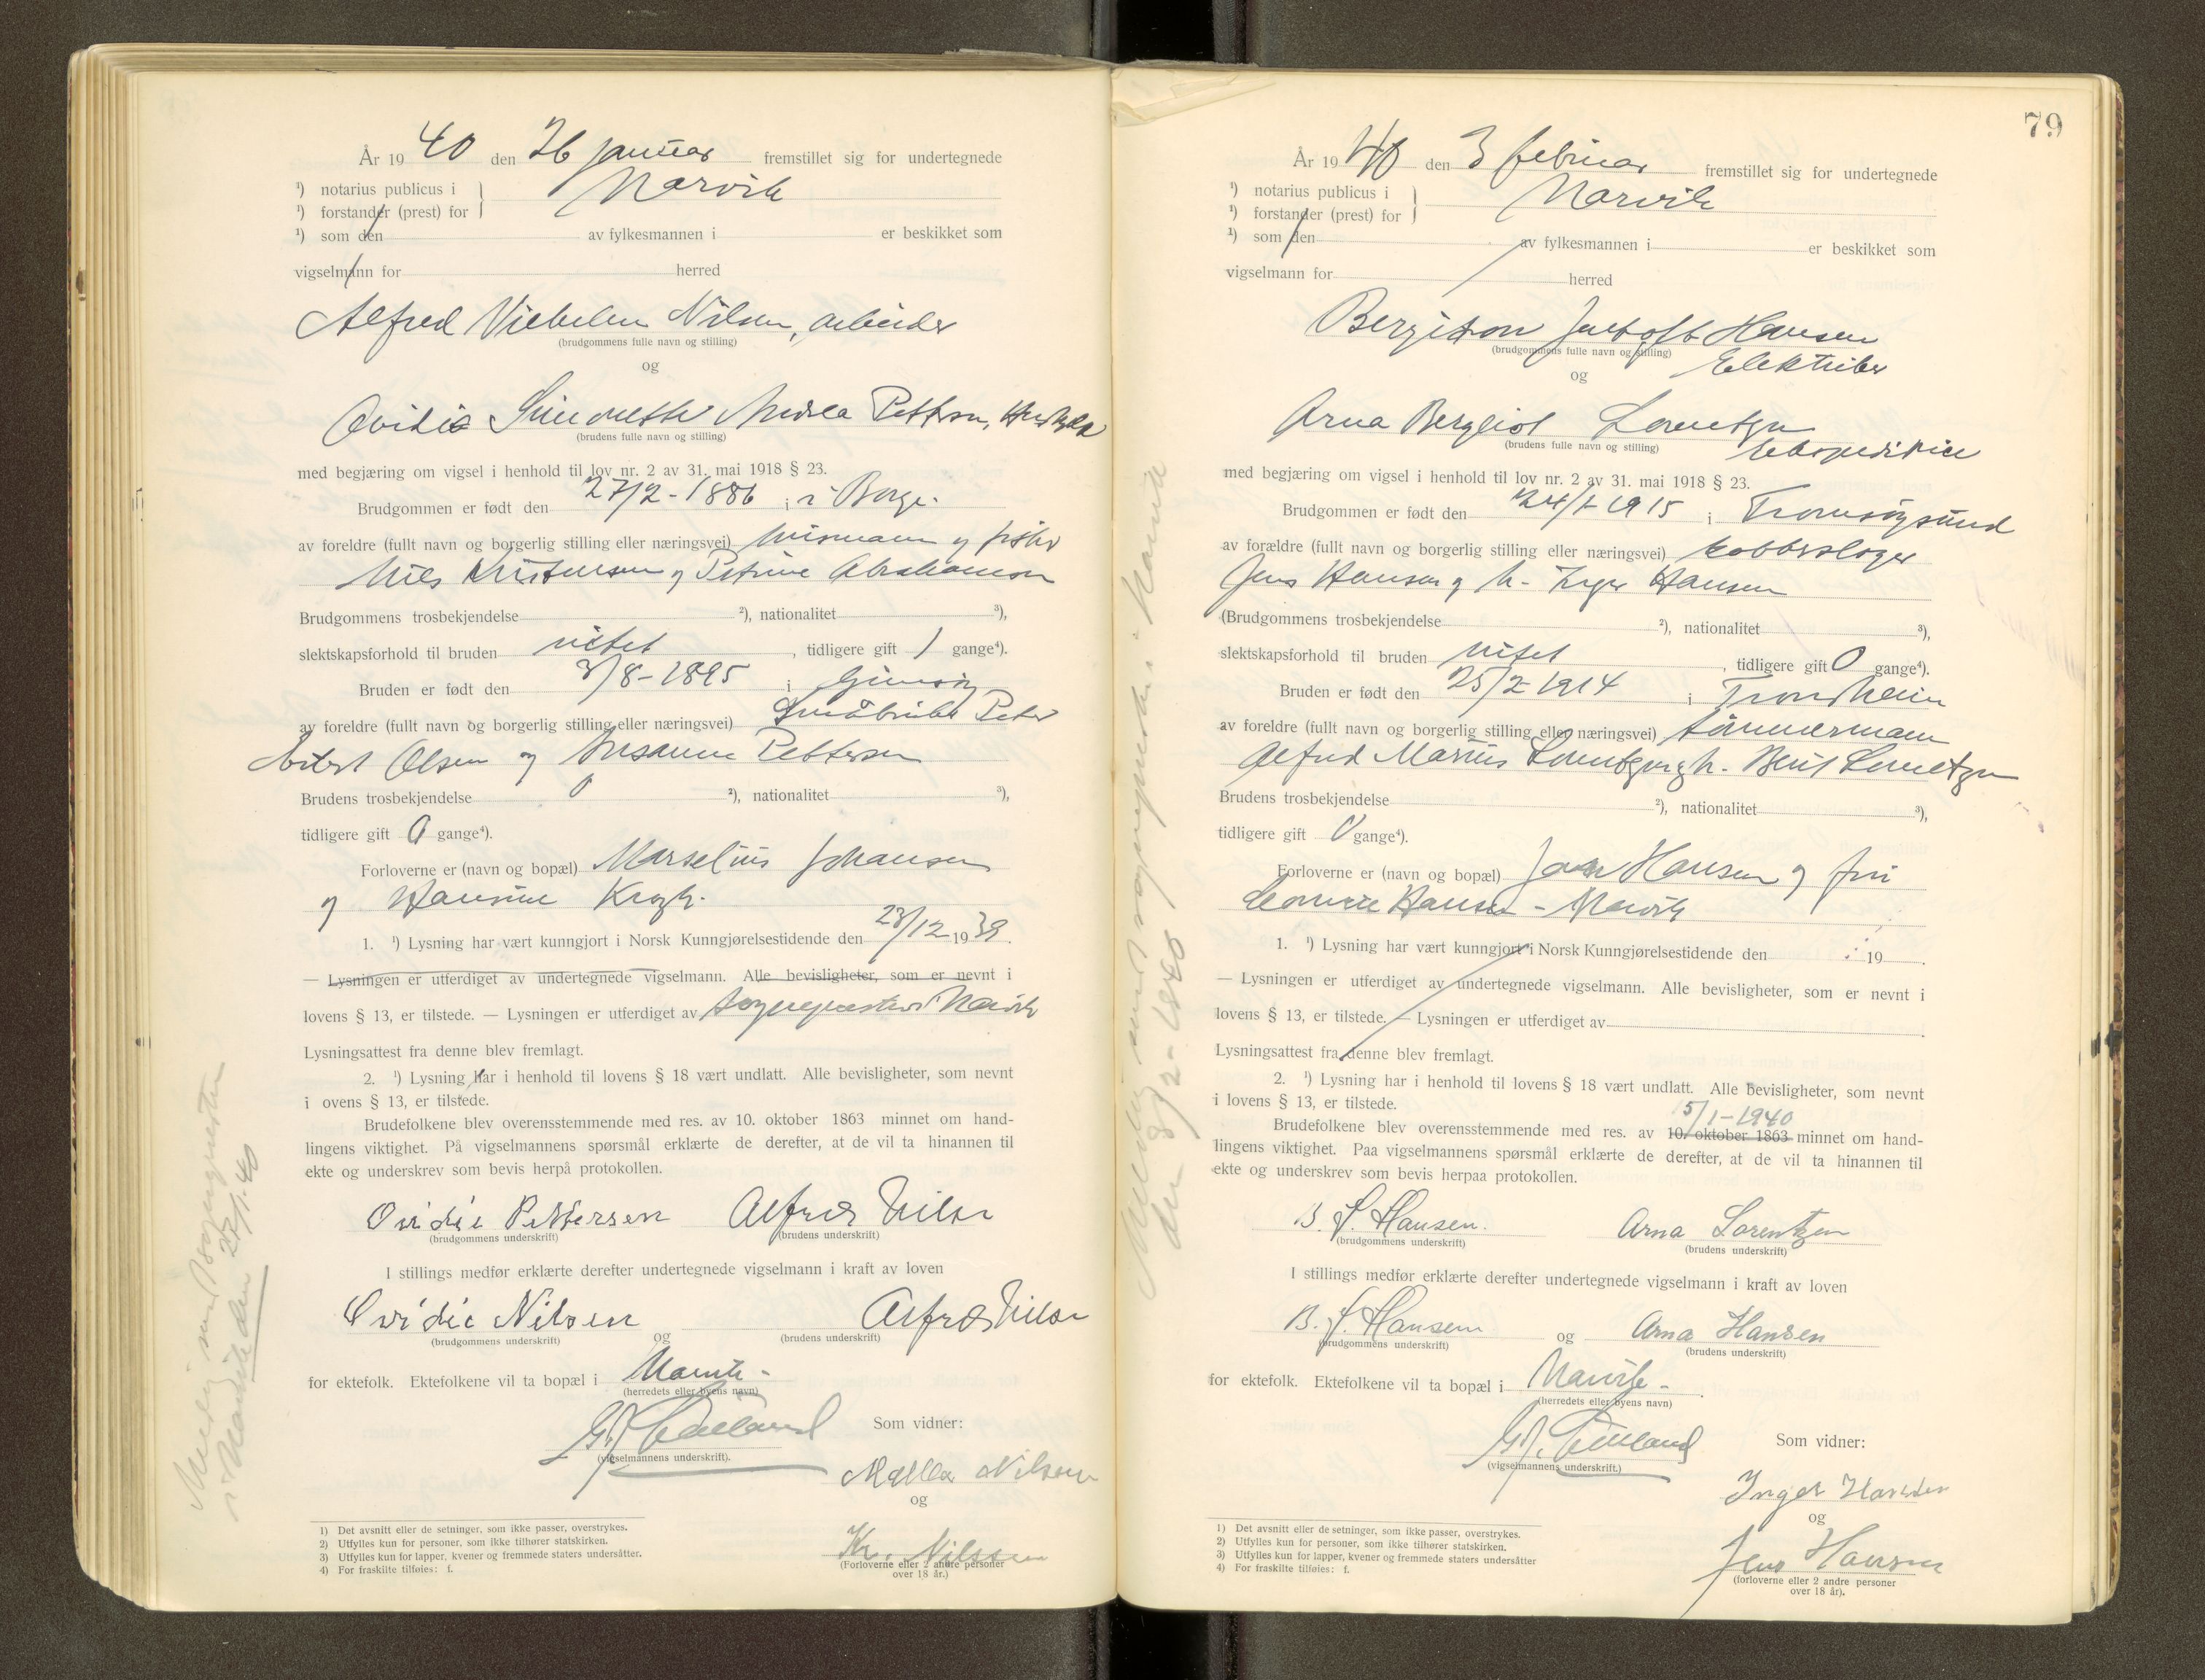 År 1940 den 26 januar fremstillet sig for undertegnede
¹) notarius publicus i
¹) forstander (prest) for
Narvik
¹) som den av fylkesmannen i er beskikket som
vigselmann for herred
Alfred Vilhelm Nilsen, arbeider
(brudgommens fulle navn og stilling)
og
Ovidie Simonette Andrea Pettersen,
(brudens fulle navn og stilling)
med begjæring om vigsel i henhold til lov nr. 2 av 31. mai 1918 § 23.
Brudgommen er født den 27/2-1886 i Borge.
av foreldre (fullt navn og borgerlig stilling eller næringsvei) og fisker
Nils Kristensen og Petrine Abrahamsen
Brudgommens trosbekjendelse ²), nationalitet ³),
slektskapsforhold til bruden intet, tidligere gift 1 gange⁴).
Bruden er født den 3/8-1895 i Gimsøy
av foreldre (fullt navn og borgerlig stilling eller næringsvei) Småbruker Peter
Olsen og Susanne Pettersen
Brudens trosbekjendelse ²), nationalitet ³),
tidligere gift 0 gange⁴).
Forloverne er (navn og bopæl) Marselius Johansen
og Hansine Krogh.
1. ¹) Lysning har vært kunngjort i Norsk Kunngjørelsestidende den 23/12 1939.
— Lysningen er utferdiget av undertegnede vigselmann. Alle bevisligheter, som er nevnt i
lovens § 13, er tilstede. — Lysningen er utferdiget av sognepresten i Narvik
Lysningsattest fra denne blev fremlagt.
2. ¹) Lysning har i henhold til lovens § 18 vært undlatt. Alle bevisligheter, som nevnt
i ovens § 13, er tilstede.
Brudefolkene blev overensstemmende med res. av 10. oktober 1863 minnet om hand-
lingens viktighet. På vigselmannens spørsmål erklærte de derefter, at de vil ta hinannen til
ekte og underskrev som bevis herpå protokollen.
Ovidie Pettersen Alfred Nilsen
(brudgommens underskrift) (brudens underskrift)
I stillings medfør erklærte derefter undertegnede vigselmann i kraft av loven
Ovidie Nilsen og Alfred Nilsen
(brudgommens underskrift) (brudens underskrift)
for ektefolk. Ektefolkene vil ta bopæl i Narvik-
(herredets eller byens navn)
Som vidner:
(vigselmannens underskrift).
Nilsen
og
Kr. Nilssen
(Forloverne eller 2 andre personer
over 18 år.)
1) Det avsnitt eller de setninger, som ikke passer, overstrykes.
2) Utfylles kun for personer, som ikke tilhører statskirken.
3) Utfylles kun for lapper, kvener og fremmede staters undersåtter.
4) For fraskilte tilføies: f.
Melding sendt sognepresten
i Narvik den 27/1-40
79
År 1940 den 3 februar fremstillet sig for undertegnede
¹) notarius publicus i
¹) forstander (prest) for
Narvik
¹) som den av fylkesmannen i er beskikket som
vigselmann for herred
Hansen
(brudgommens fulle navn og stilling)
Elektriker
og
Arna Bergliot Lorentzen
(brudens fulle navn og stilling)
Ekspeditrice
med begjæring om vigsel i henhold til lov nr. 2 av 31. mai 1918 § 23.
Brudgommen er født den 24/1-1915 i Tromsøysund
av forældre (fullt navn og borgerlig stilling eller næringsvei) kobberslager
Jens Hansen og h. Inger Hansen
(Brudgommens trosbekjendelse ²), nationalitet ³),
slektskapsforhold til bruden intet, tidligere gift 0 gange⁴).
Bruden er født den 25/2-1914 i Trondheim
av foreldre (fullt navn og borgerlig stilling eller næringsvei) tømmermann
Alfred Marius Lorentzen og h. Berit Lorentzen
Brudens trosbekjendelse ²), nationalitet ³),
tidligere gift 0 gange⁴).
Forloverne er (navn og bopæl) Hansen og fru
Hansen - Narvik
1. ¹) Lysning har vært kunngjort i Norsk Kunngjørelsestidende den 19
— Lysningen er utferdiget av undertegnede vigselmann. Alle bevisligheter, som er nevnt i
lovens § 13, er tilstede. — Lysningen er utferdiget av
Lysningsattest fra denne blev fremlagt.
2. ¹) Lysning har i henhold til lovens § 18 vært undlatt. Alle bevisligheter, som nevnt
i lovens § 13, er tilstede.
5/1-1940
Brudefolkene blev overensstemmende med res. av 10. oktober 1863 minnet om hand-
lingens viktighet. Paa vigselmannens spørsmål erklærte de derefter, at de vil ta hinannen til
ekte og underskrev som bevis herpaa protokollen.
B. J. Hansen. Arna Lorentzen
(brudgommens underskrift) (brudens underskrift)
I stillings medfør erklærte derefter undertegnede vigselmann i kraft av loven
B. J. Hansen og Arna Hansen
(brudgommens underskrift) (brudens underskrift)
for ektefolk. Ektefolkene vil ta bopæl i Narvik-
(herredets eller byens navn)
Som vidner:
(vigselmannens underskrift.)
Inger Hansen
og
Jens Hansen
(forloverne eller 2 andre personer
over 18 år).
1) Det avsnitt eller de setninger, som ikke passer, overstrykes.
2) Utfylles kun for personer, som ikke tilhører statskirken.
3) Utfylles kun for lapper, kvener og fremmede staters undersåtter
4) For fraskilte tilføies: f.
Melding sendt sognepresten i Narvik
den 3/2-1940